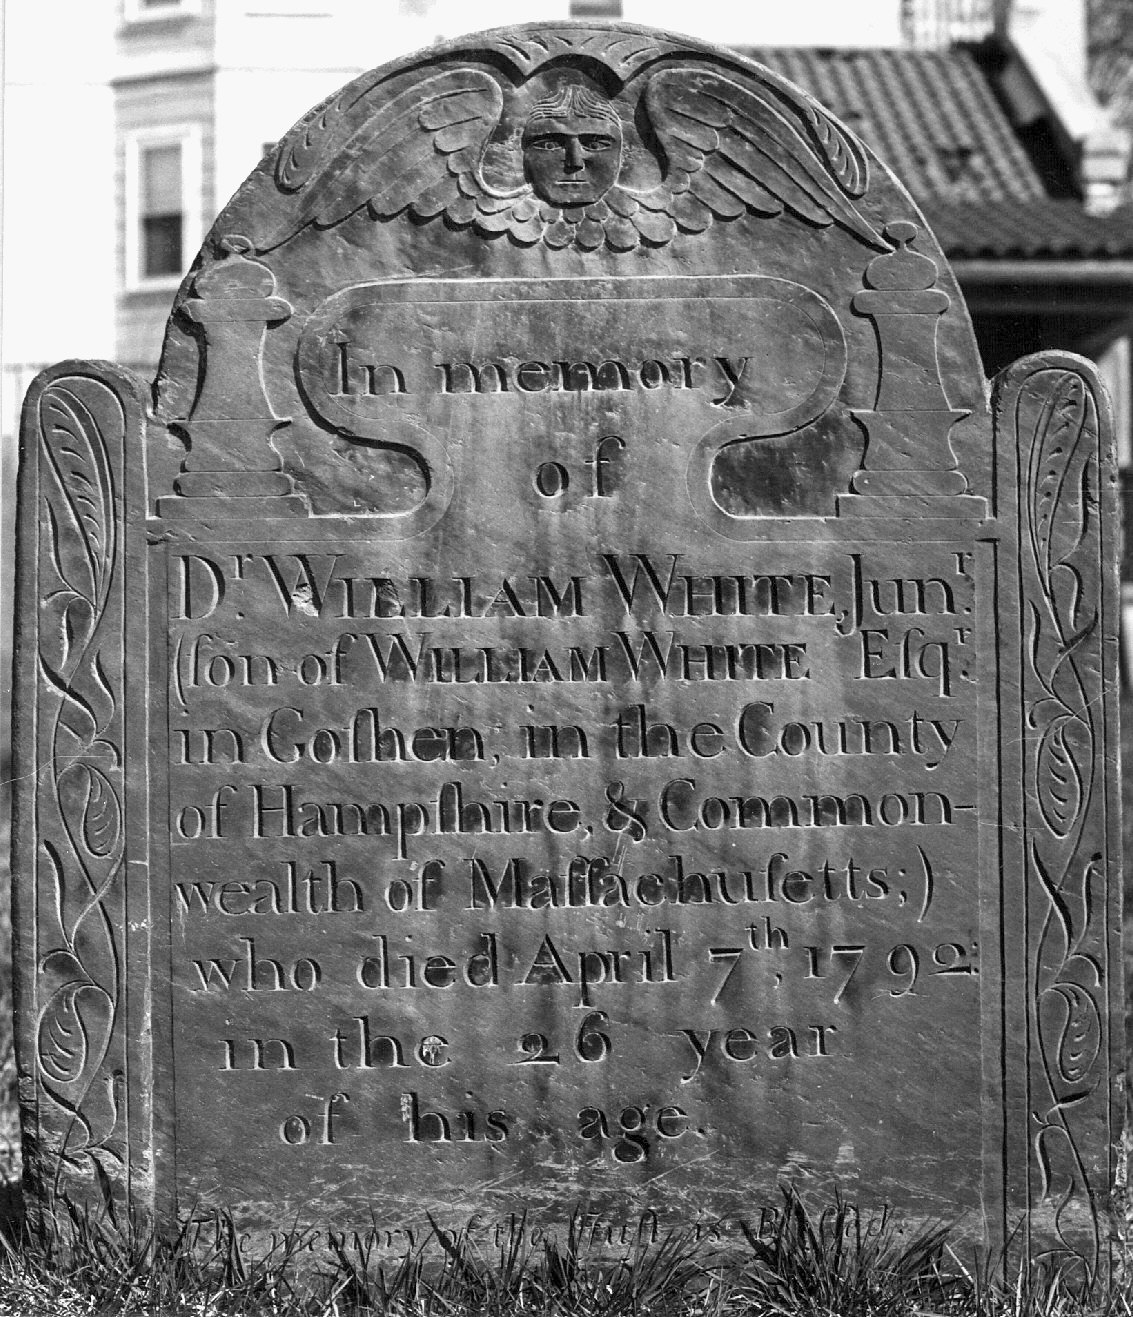 In memory
of
Dʳ. WILLIAM WHITE, Junʳ.
(ſon of WILLIAM WHITE Eſqʳ.
in Goſhen, in the County
of Hampſhire, & Common-
wealth of Maſſachuſetts;)
who died April 7ᵗʰ, 1792:
in the 26 year
of his age.
The memory of the Juſt is Bleſſed: